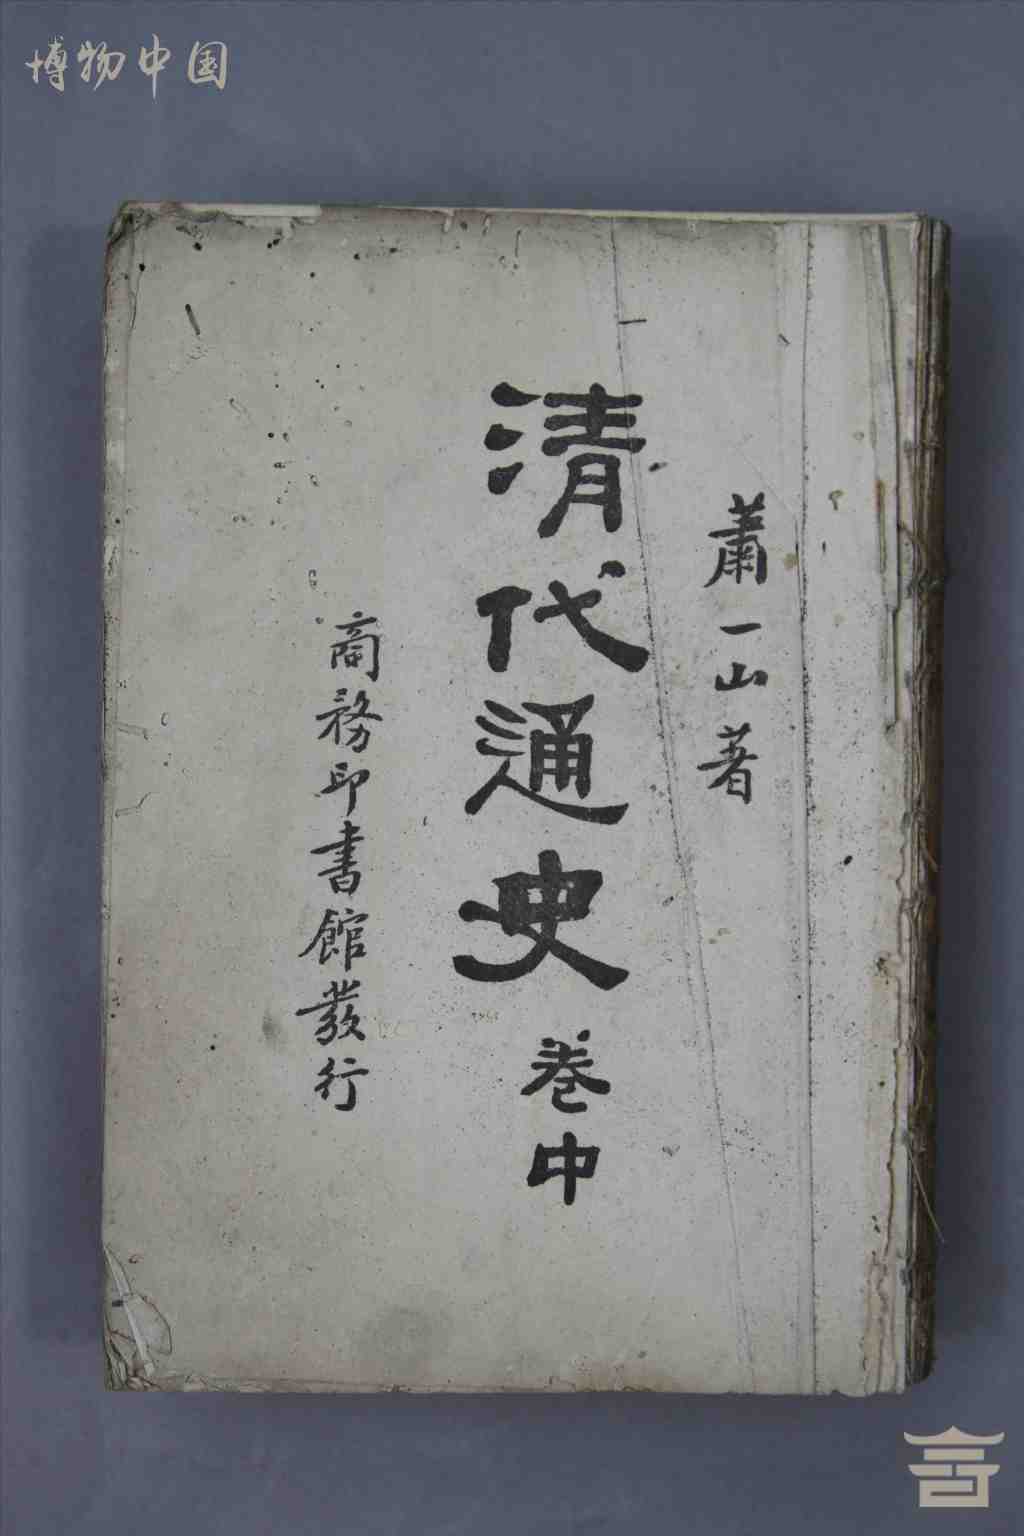 博物中国
蕭一山著
清代通史 卷中
商務印書館發行